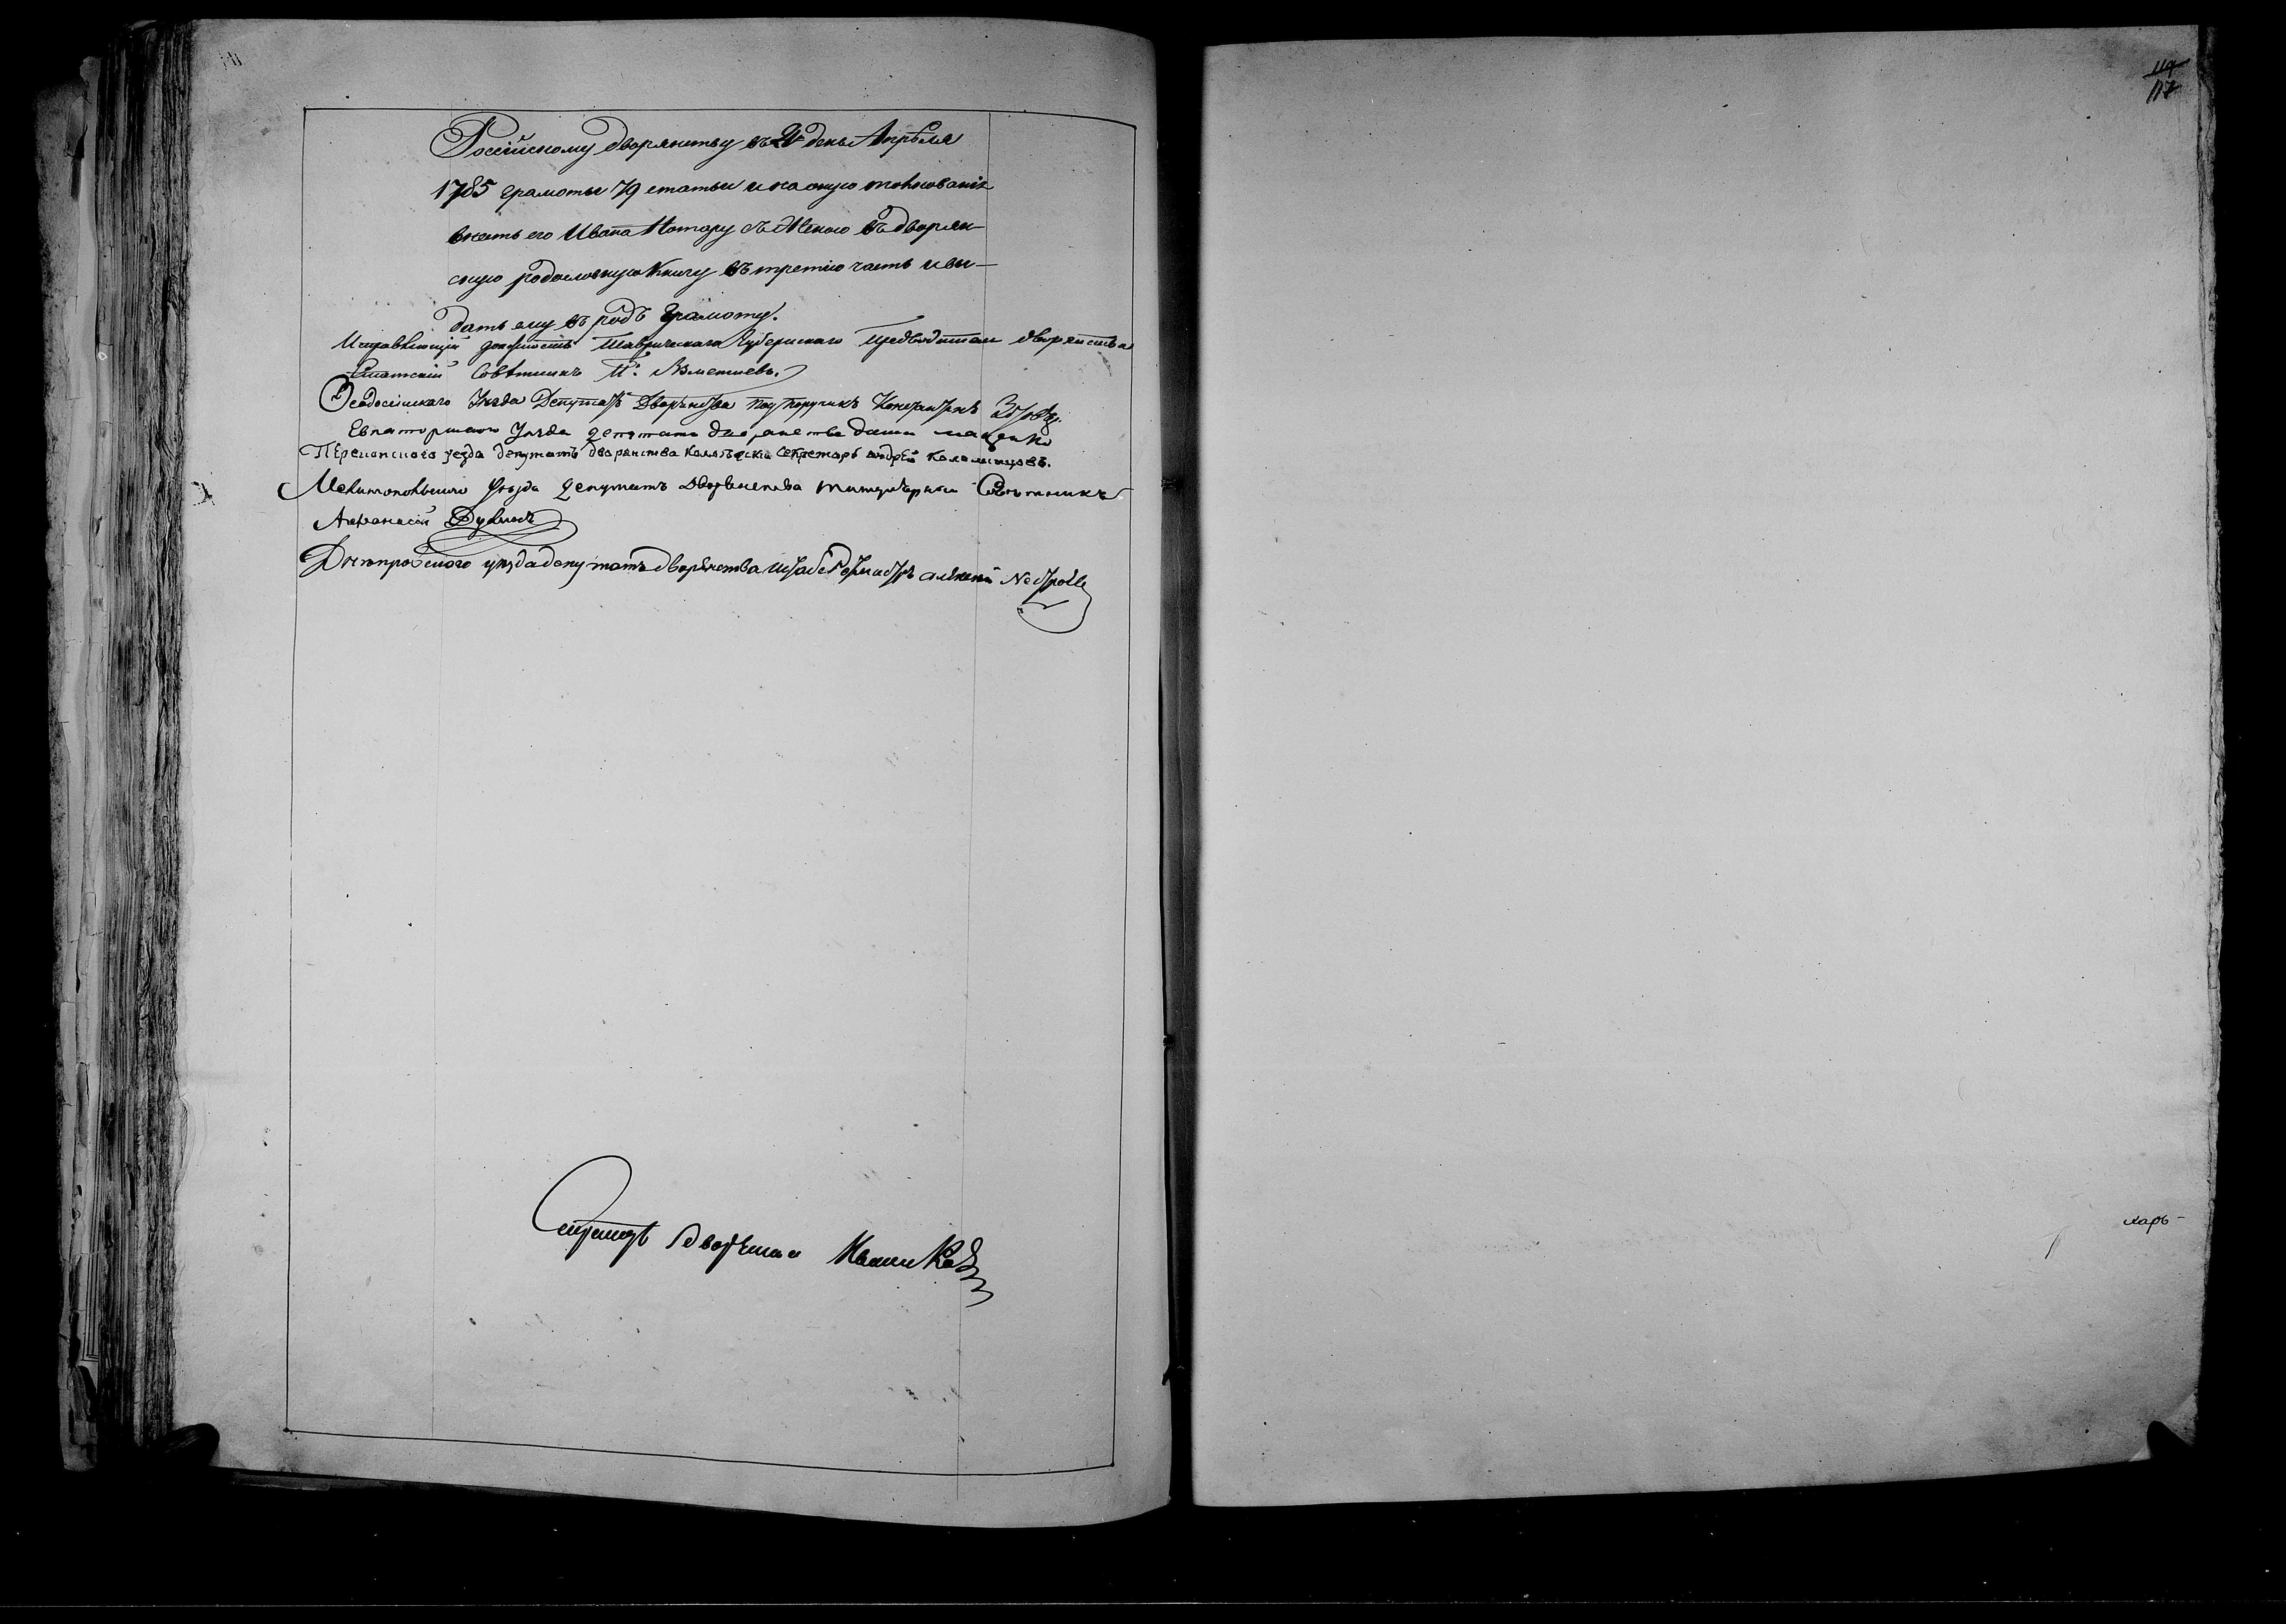 117
Россійскому дворянству въ 21 день Апрѣля
1785 грамоты 79 статьи и на оную толкованія
внесть его Ивана Нотару съ женою въ дворян-
скую родословную книгу въ третію часть и вы-
дать ему въ родъ грамоту.
Исправляющій должность Таврическаго Губернскаго Предводителя дворянства
Статскій Совѣтникъ
Ѳеодосійскаго Уѣзда Депутатъ Дворянства Подпоручикъ Константинъ
Евпаторскаго Уѣзда депутатъ дворянства
Перекопскаго уезда депутатъ дворянства Колежскій Секретарь андрей
Мелитопольскаго Уѣзда Депутатъ Дворянства титулярный Совѣтникъ
Афанасій
Днѣпровскаго уѣзда депутатъ дворянства Штабс Ротмистръ алексей
Секретарь дворянства
карь-